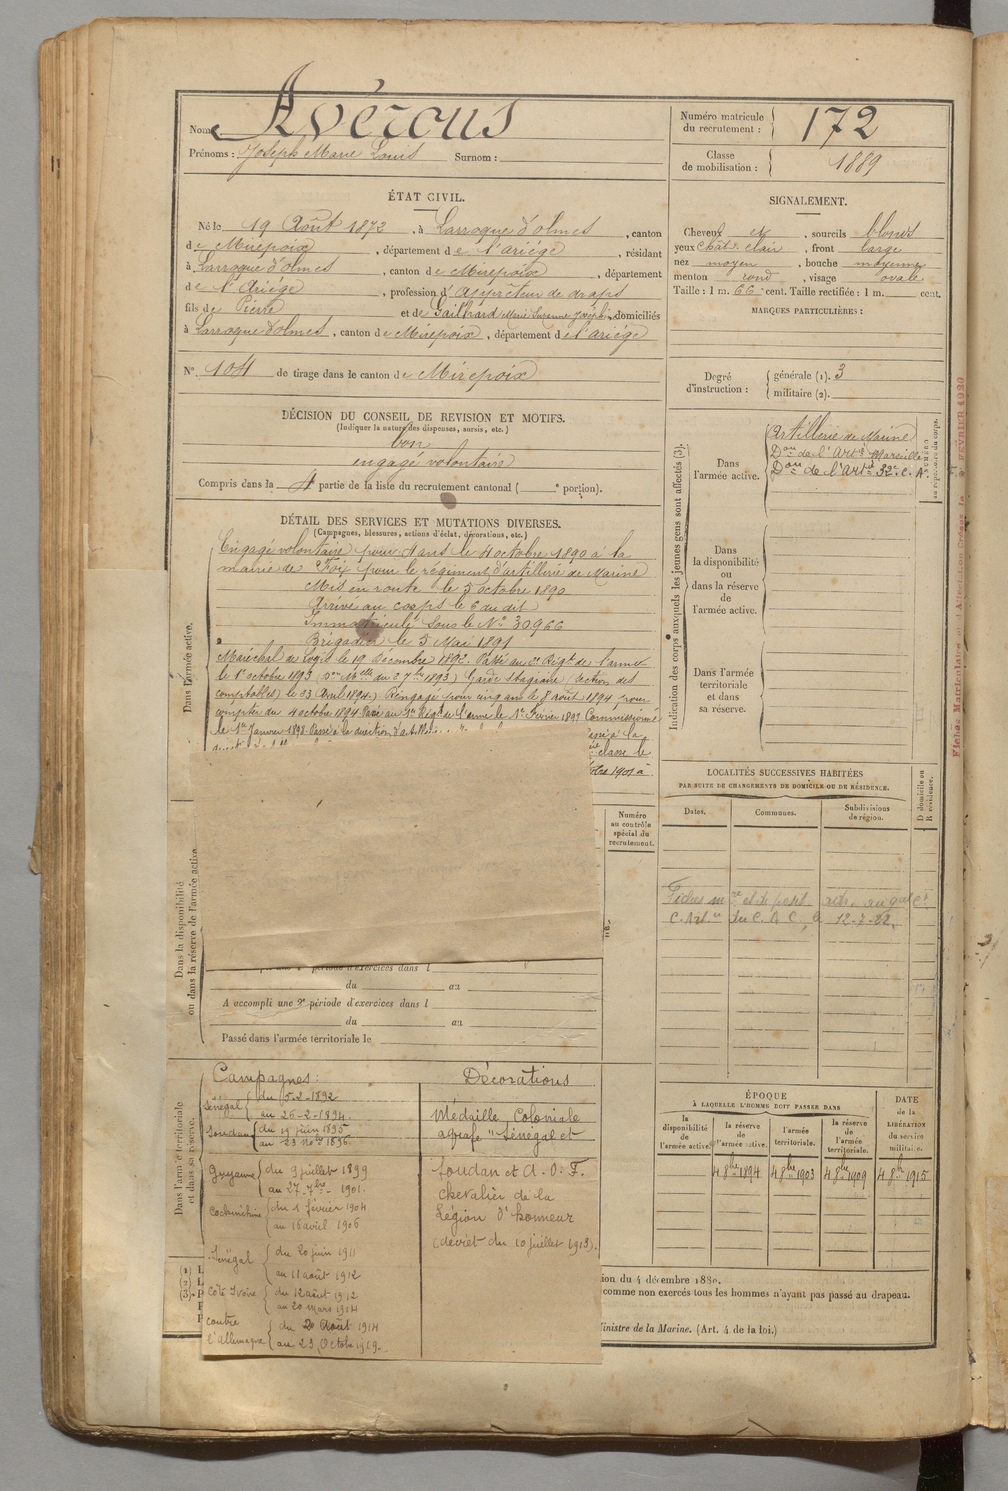 Nom Avérous
Prénoms : Joseph Marie Louis Surnom :
Numéro matricule du recrutement : 172
Classe de mobilisation : 1889
ÉTAT CIVIL.
Né le 19 Août 1872, à Larroque d'olmes, canton
de Mirepoix, département de l'Ariége, résidant
à Larroque d'olmes, canton de Mirepoix, département
de l'Ariége, profession d'Apprêteur de draps
fils de Pierre et de Gailhard Marie Suzanne Joséph, domiciliés
à Larroque d'olmes, canton de Mirepoix, département de l'ariége
N° 104 de tirage dans le canton de Mirepoix
SIGNALEMENT.
Cheveux et, sourcils blonds
yeux chât. clair, front large
nez moyen, bouche moyenne
menton rond, visage ovale
Taille : 1 m. 66 cent. Taille rectifiée : 1 m. cent.
MARQUES PARTICULIÈRES :
Degré d'instruction : générale (1). 3
militaire (2).
DÉCISION DU CONSEIL DE REVISION ET MOTIFS.
(Indiquer la nature des dispenses, sursis, etc.)
bon
engagé volontaire
Compris dans la 4 partie de la liste du recrutement cantonal ( e portion).
DÉTAIL DES SERVICES ET MUTATIONS DIVERSES.
(Campagnes, blessures, actions d'éclat, décorations, etc.)
Dans l'armée active.
Engagé volontaire pour 4 ans le 4 octobre 1890 à la
mairie de Foix pour le régiment d'artillerie de Marine
Mis en route le 5 octobre 1890
Arrivé au corps le 6 du dit
Immatriculé sous le N° 30966
Brigadier le 5 Mai 1891
Maréchal de Logis le 19 Décembre 1892. Passé au 2e Régt de l'arme
le 1er octobre 1893 du 27 7bre 1893) Garde Stagiaire (section des
comptables) le 23 Avril 1894.) Rengagé pour cinq ans le 8 août 1894 pour
compter du 4 octobre 1894 Passé au 1er Régt de l'arme le 1er Février 1897 Commissionné
le 1er Janvier 1898. Passé à la direction d'artillerie
passé à la
classe le
1901 à
Indication des corps auxquels les jeunes gens sont affectés (3).
Dans l'armée active.
Artillerie de Marine
Don de l'Artie Marseille
Don de l'Artie
Dans la disponibilité ou dans la réserve de l'armée active.
Dans l'armée territoriale et dans sa réserve.
NUMÉROS au répertoire du corps.
Fiches Matriculaire et FÉVRIER 1920
LOCALITÉS SUCCESSIVES HABITÉES
PAR SUITE DE CHANGEMENTS DE DOMICILE OU DE RÉSIDENCE.
Dates. Communes. Subdivisions de région. D domicile ou R résidence.
12-7-22.
Numéro au contrôle spécial du recrutement.
Dans la disponibilité ou dans la réserve de l'armée active
période d'exercices dans l
du au
A accompli une 2e période d'exercices dans l
du au
Passé dans l'armée territoriale le
Dans l'armée territoriale et dans sa réserve.
Campagnes : Décorations
Sénégal du 5-2-1892
au 26-2-1894.
Soudan du 19 juin 1895
au 23 Nov 1896.
Guyane du 9 juillet 1899
au 27 7bre 1901.
Cochinchine du 1 février 1904
au 16 avril 1906
Sénégal du 20 juin 1911
au 11 août 1912
Côte Ivoire du 12 août 1912
au 20 mars 1914
contre l'allemagne du 20 Août 1914
au 23 Octobre 1919.
Médaille Coloniale
agrafe "Sénégal et
Soudan et A. O. F.
chevalier de la
Légion d'honneur
(décret du 10 juillet 1913).
ÉPOQUE
À LAQUELLE L'HOMME DOIT PASSER DANS
la disponibilité de l'armée active.
la réserve de l'armée active.
l'armée territoriale.
la réserve de l'armée territoriale.
DATE de la LIBÉRATION du service militaire.
4 8bre 1894 4 8bre 1903 4 8bre 1909 4 8bre 1915
ion du 4 décembre 1889.
comme non exercés tous les hommes n'ayant pas passé au drapeau.
Ministre de la Marine. (Art. 4 de la loi.)